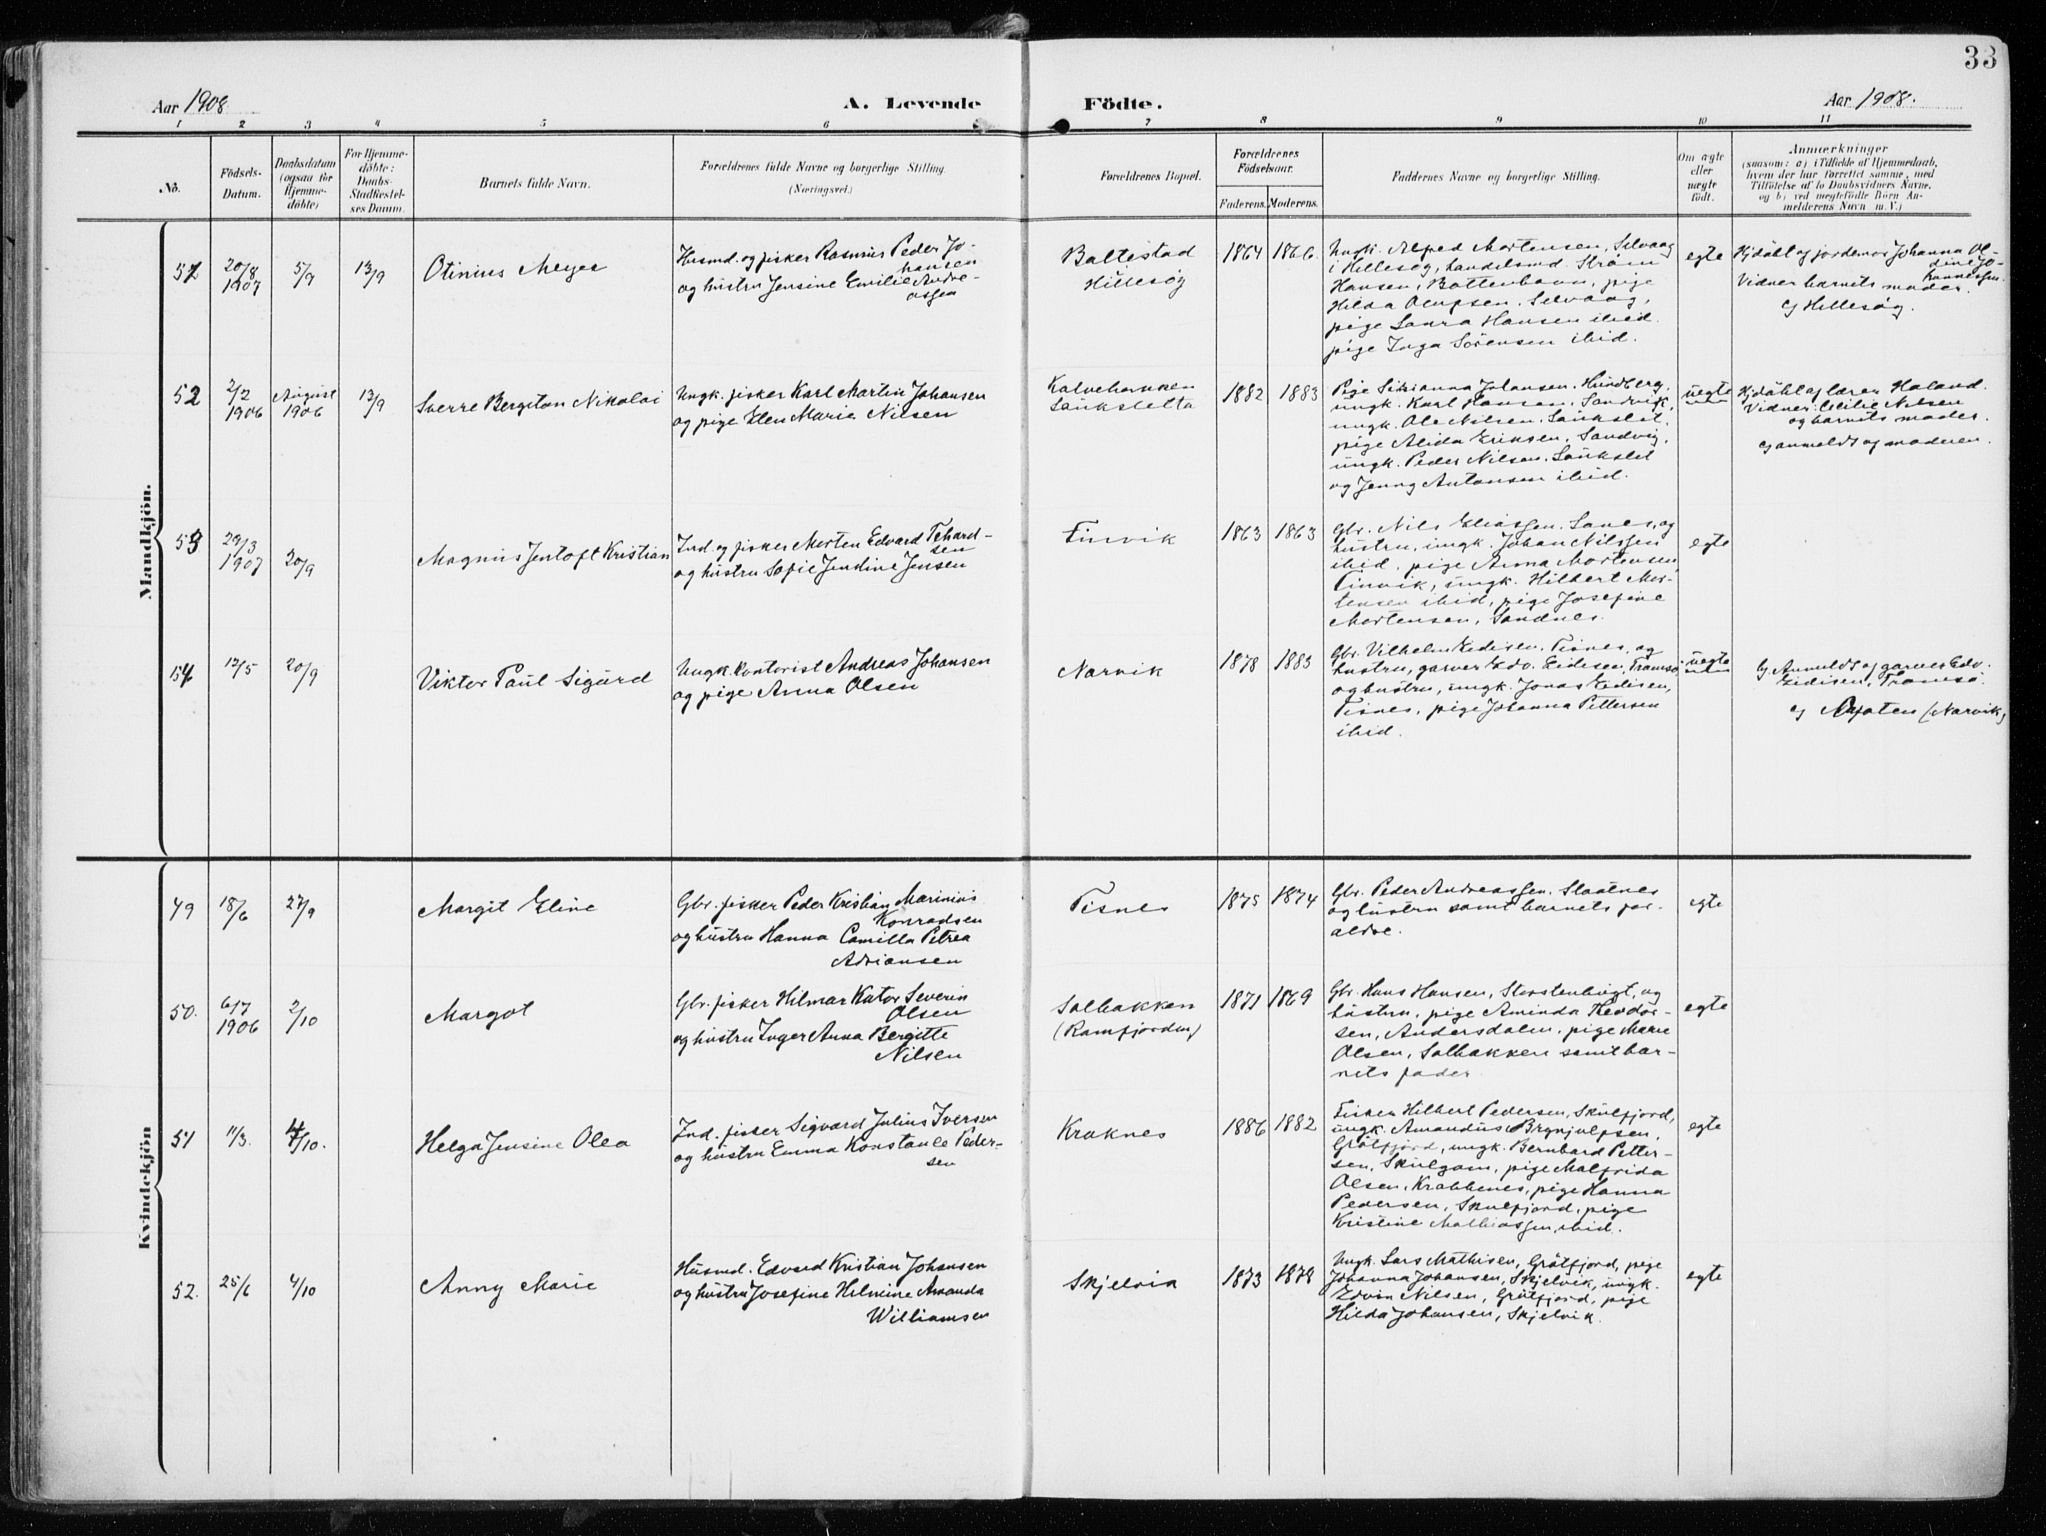 33
Aar 1908
A. Levende
Födte.
Aar 1908.
1 2 3 4 5 6 7 8 9 10 11
No.
Födsels-
Datum.
Daabsdatum
(ogsaa for
Hjemme-
döbte)
For Hjemme-
döbte:
Daabs-
Stadfæstel-
ses Datum.
Barnets fulde Navn.
Forældrenes fulde Navne og borgerlige Stilling.
(Næringsvei.)
Forældrenes Bopæl.
Forældrenes
Födselsaar.
Faderens. Moderens.
Faddernes Navne og borgerlige Stilling.
Om ægte
eller
uægte
födt.
Anmærkninger
(saasom: a) i Tilfælde af Hjemmedaab,
hvem der har forrettet samme, med
Tilföielse af to Daabsvidners Navne,
og b) ved uægtefödte Börn An-
melderens Navn m. V.)
Mandkjön.
51
20/8
1907
5/9
13/9
Otinius Meyer
Husmd. og fisker Rasmus Peder Jo-
hansen
og hustru Jensine Emilie Andre-
assen
Baltestad
Hillesøg
1864
1866.
Ungk. Alfred Mortensen, Selvaag
i Hillesøg, handelsmd. Strøm
Hansen, Bottenhavn, pige
Hilda Olufsen, Selvaag,
pige Laura Hansen ibid.
pige Inga Sørensen ibid.
egte
Hjdøbt af jordemor Johanna Ol-
dine Jo-
hannessen.
Vidner barnets moder.
cf Hillesøg.
52
2/2
1906
August
1906
13/9
Sverre Bergiton Nikolai
Ungk. fisker Karl Martin Johansen
og pige Elen Marie Nilsen
Kalvehamken
Lanksletta
1882
1883
Pige Johansen, Hundberg.
ungk. Karl Hansen, Sandvik,
ungk. Ole Nilsen, Lankslet,
pige Alida Eriksen, Sandvig,
ungk. Peder Nilsen, Lankslet
og Jenny Antonsen ibid.
uegte
Hjdøbt af lærer Haland.
Vidner: Cecilie Nilsen
og barnets moder.
cf anmeldt af moderen.
53
29/3
1907
20/9
Magnus Jentoft Kristian
Ind. og fisker Morten Edvard
sen
og hustru Sofie Jendine Jensen
Finvik
1863
1863
Gbr. Nils Eliassen, Lanes, og
hustru, ungk. Johan Nilssen
ibid, pige Anna Mortensen
Finvik, ungk. Hilbert Mor-
tensen ibid, pige Josefine
Mortensen, Sandnes.
egte
54
12/5
20/9
Viktor Paul Sigurd
Ungk. kontorist Andreas Johansen
og pige Anna Olsen
Narvik
1878
1883
Gbr. Vilhelm Eedisen, Tisnes, og
hustru, garver Edv. Eidisen, Tromsø,
og hustru, ungk. Jonas Eedisen,
Tisnes, pige Johanna Pettersen
ibid.
uegte
cf. Anmeldt af garver Edv.
Eidisen, Tromsø.
cf (Narvik)
Kvindekjön
49
18/6
27/9
Margit Eline
Gbr. fisker Peder Kristian Marinius
Konradsen
og hustru Hanna Camilla Petrea
Adriansen
Tisnes
1875
1874
Gbr. Peder Andreassen, Slaatnes
og hustru samt barnets for-
ældre.
egte
50.
6/7
1906
2/10
Margot
Gbr. fisker Hilmar Kator Severin
Olsen
og hustru Inger Anna Bergitte
Nilsen
Solbakken
(Ramfjorden)
1871
1869
Gbr. Hans Hansen, Storstenbugt, og
hustru, pige Aminda Teodor-
sen, Andersdalen, pige Marie
Olsen, Solbakken samt bar-
nets fader
egte
51
11/3.
4/10.
Helga Jensine Olea
Ind. fisker Sigvard Julius Iversen
og hustru Emma Konstanse Peder-
sen
Kraknes
1886
1882
Fisker Hilbert Pedersen, Skulfjord,
ungk. Amandus Brynjulfsen,
Grøtfjord, ungk. Bernhard Petter-
sen, Skulgam, pige Malfrida
Olsen, Krabbenes, pige Hanna
Pedersen, Skulfjord, pige
Kristine Mathiassen, ibid.
egte
52.
25/6
4/10
Anny Marie
Husmd. Edvard Kristian Johansen
og hustru Josefine Helmine Amanda
Williamsen
Skjelvia
1873
1878
Ungk. Lars Mathisen, Grøtfjord, pige
Johanna Johansen, Skjelvik, ungk.
Edvin Nilsen, Grøtfjord, pige
Hilda Johansen, Skjelvik.
egte